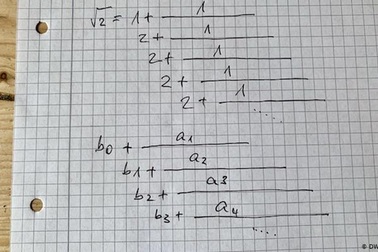 √2 = 1 + 1
2 + 1
2 + 1
2 + 1
2 + 1
.....
b₀ + a₁
b₁ + a₂
b₂ + a₃
b₃ + a₄
....
© DW